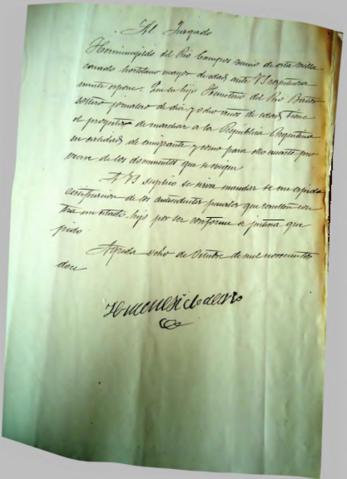 Al Juzgado
Hermenegildo del Río Campos vecino de esta villa
casado hortelano mayor de edad ante VS
mente expone: Que su hijo Hermetrio del Río
soltero jornalero de diez y ocho años de edad, tiene
el propósito de marchar a la República Argentina
en calidad de emigrante y como para ello necesita pro
veerse de los documentos que se exigen
A VS suplica se sirva mandar se me expida
certificacion de los antecedentes penales que consten con
tra mi citado hijo por ser conforme a justicia que
pido
Agreda ocho de Octubre de mil novecientos
doce